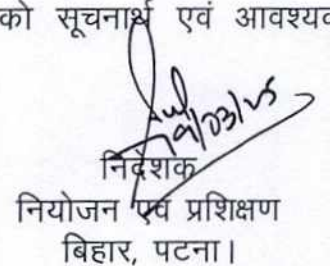 को सूचनार्थ एवं आवश्यक
निदेशक
नियोजन एवं प्रशिक्षण
बिहार, पटना।